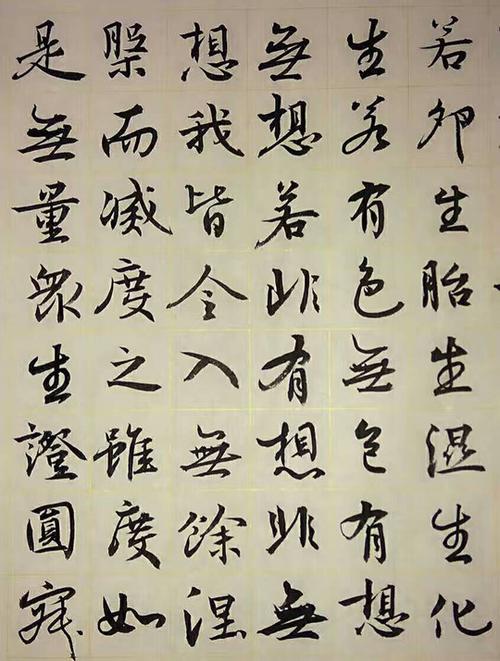 若卵生胎生湿生化
生若有色無色有想
無想若非有想非無
想我皆令入無餘涅
槃而滅度之雖度如
是無量眾生證圓寂